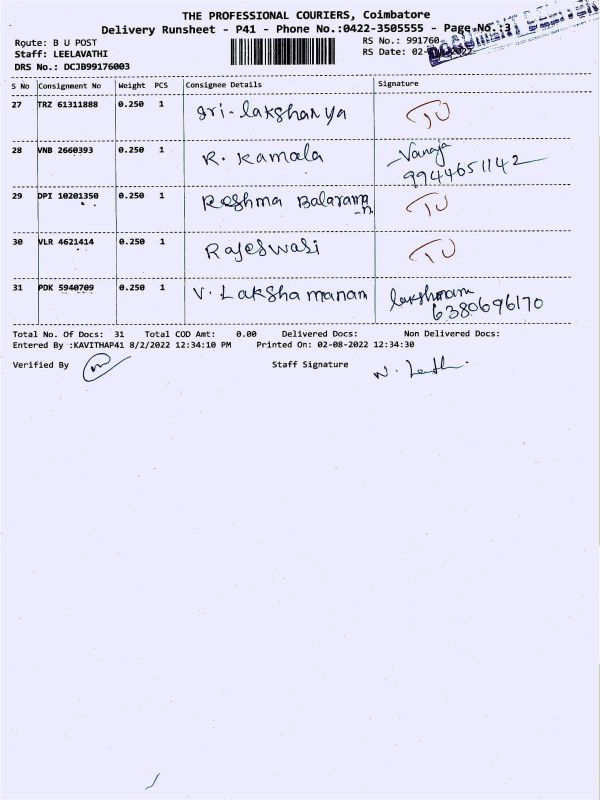 THE PROFESSIONAL COURIERS, Coimbatore
Delivery Runsheet - P41 - Phone No.:0422-3505555 - Page No.:3
Route: B U POST
RS No.: 991760
Staff: LEELAVATHI
RS Date: 02-
DRS No.: DCJB99176003
S No Consignment No Weight PCS Consignee Details Signature
27 TRZ 61311888 0.250 1 Sri-lakshanya TU
28 VNB 2660393 0.250 1 R. Kamala Vanaja
9944651142
29 DPI 10201350 0.250 1 Reshma Balaraman TU
30 VLR 4621414 0.250 1 Rajeswasi TU
31 PDK 5940709 0.250 1 V. Lakshamanan lakshmanan
6380696170
Total No. Of Docs: 31 Total COD Amt: 0.00 Delivered Docs: Non Delivered Docs:
Entered By :KAVITHAP41 8/2/2022 12:34:10 PM Printed On: 02-08-2022 12:34:30
Verified By Staff Signature